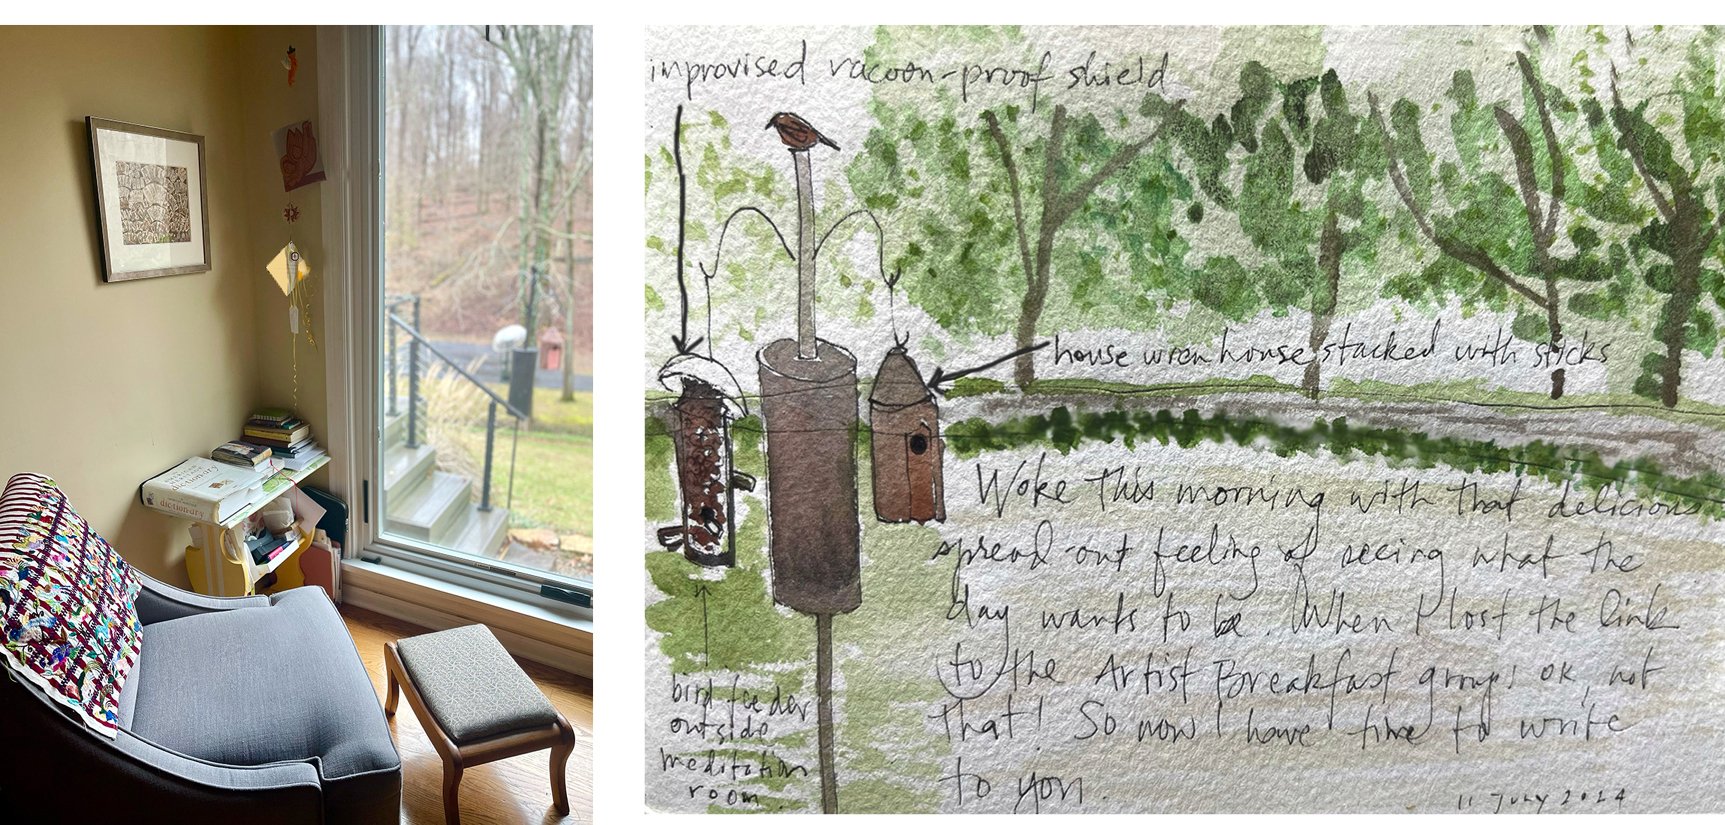 dictionary
dictionary
improvised racoon-proof shield
house wren house stacked with sticks
Woke this morning with that delicious
spread-out feeling of seeing what the
day wants to be. When I lost the link
to the Artist Breakfast group, ok, not
that! So now I have time to write
to you.
bird feeder
outside
meditation
room.
11 July 2024